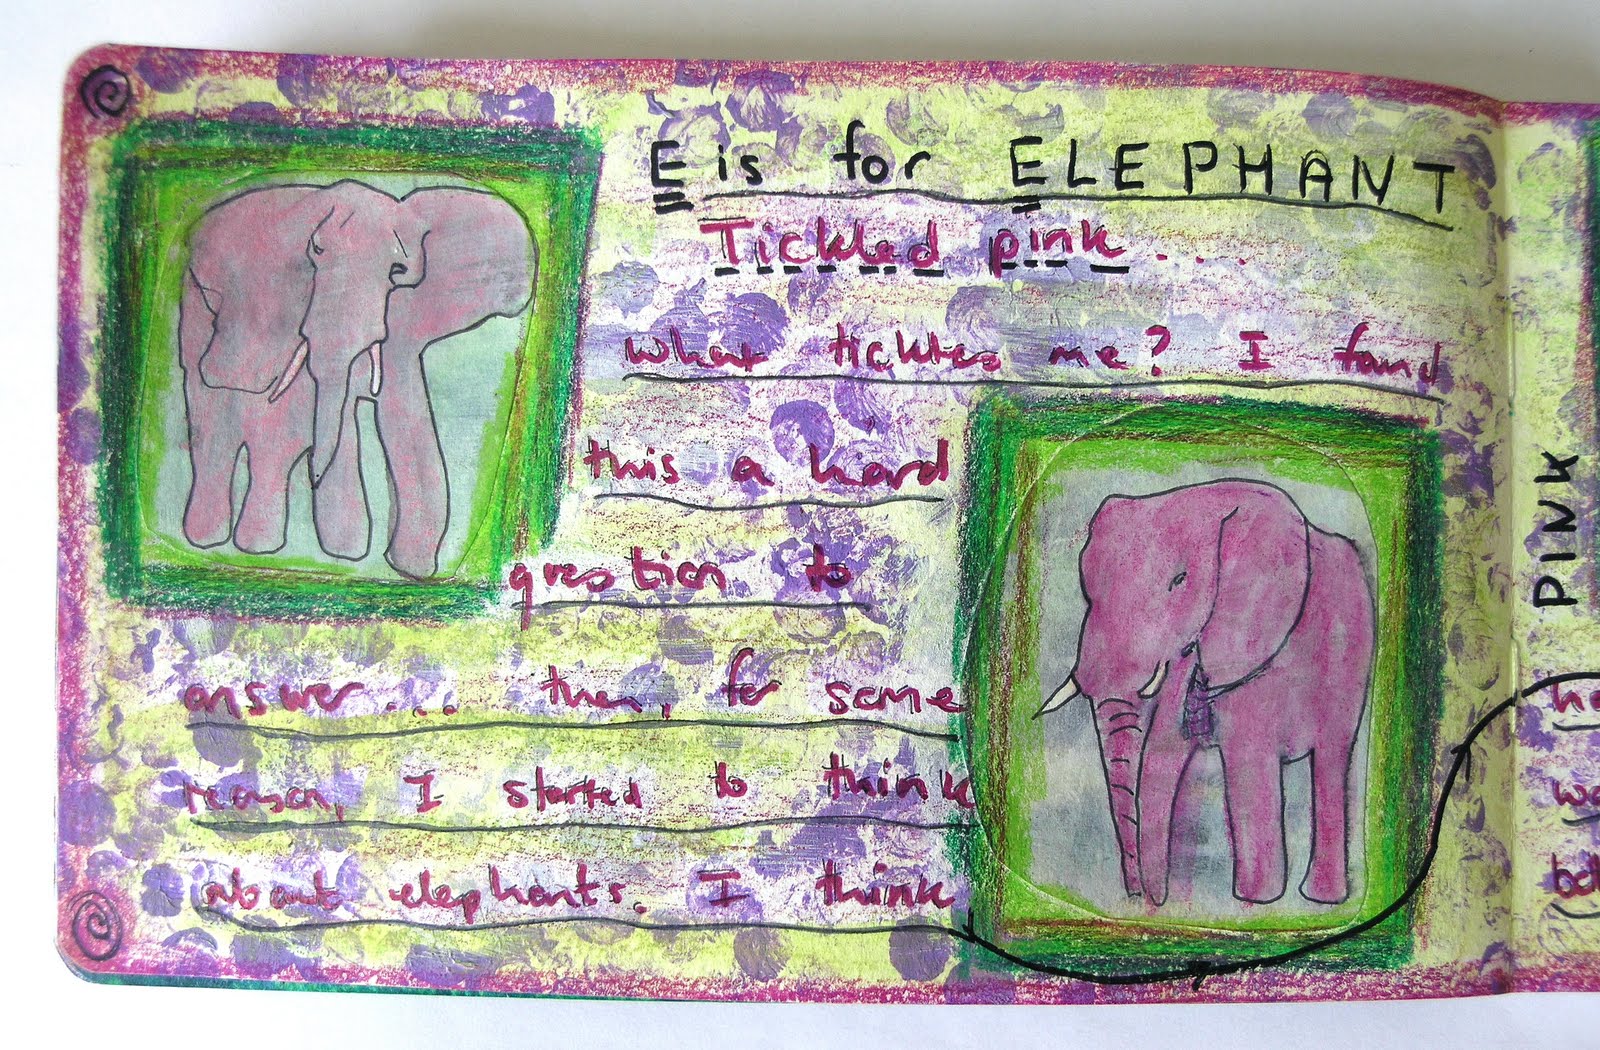 E is for ELEPHANT
Tickled pink....
what tickles me? I found
this a hard
question to
answer.... then, for some
reason, I started to think
about elephants. I think
PINK